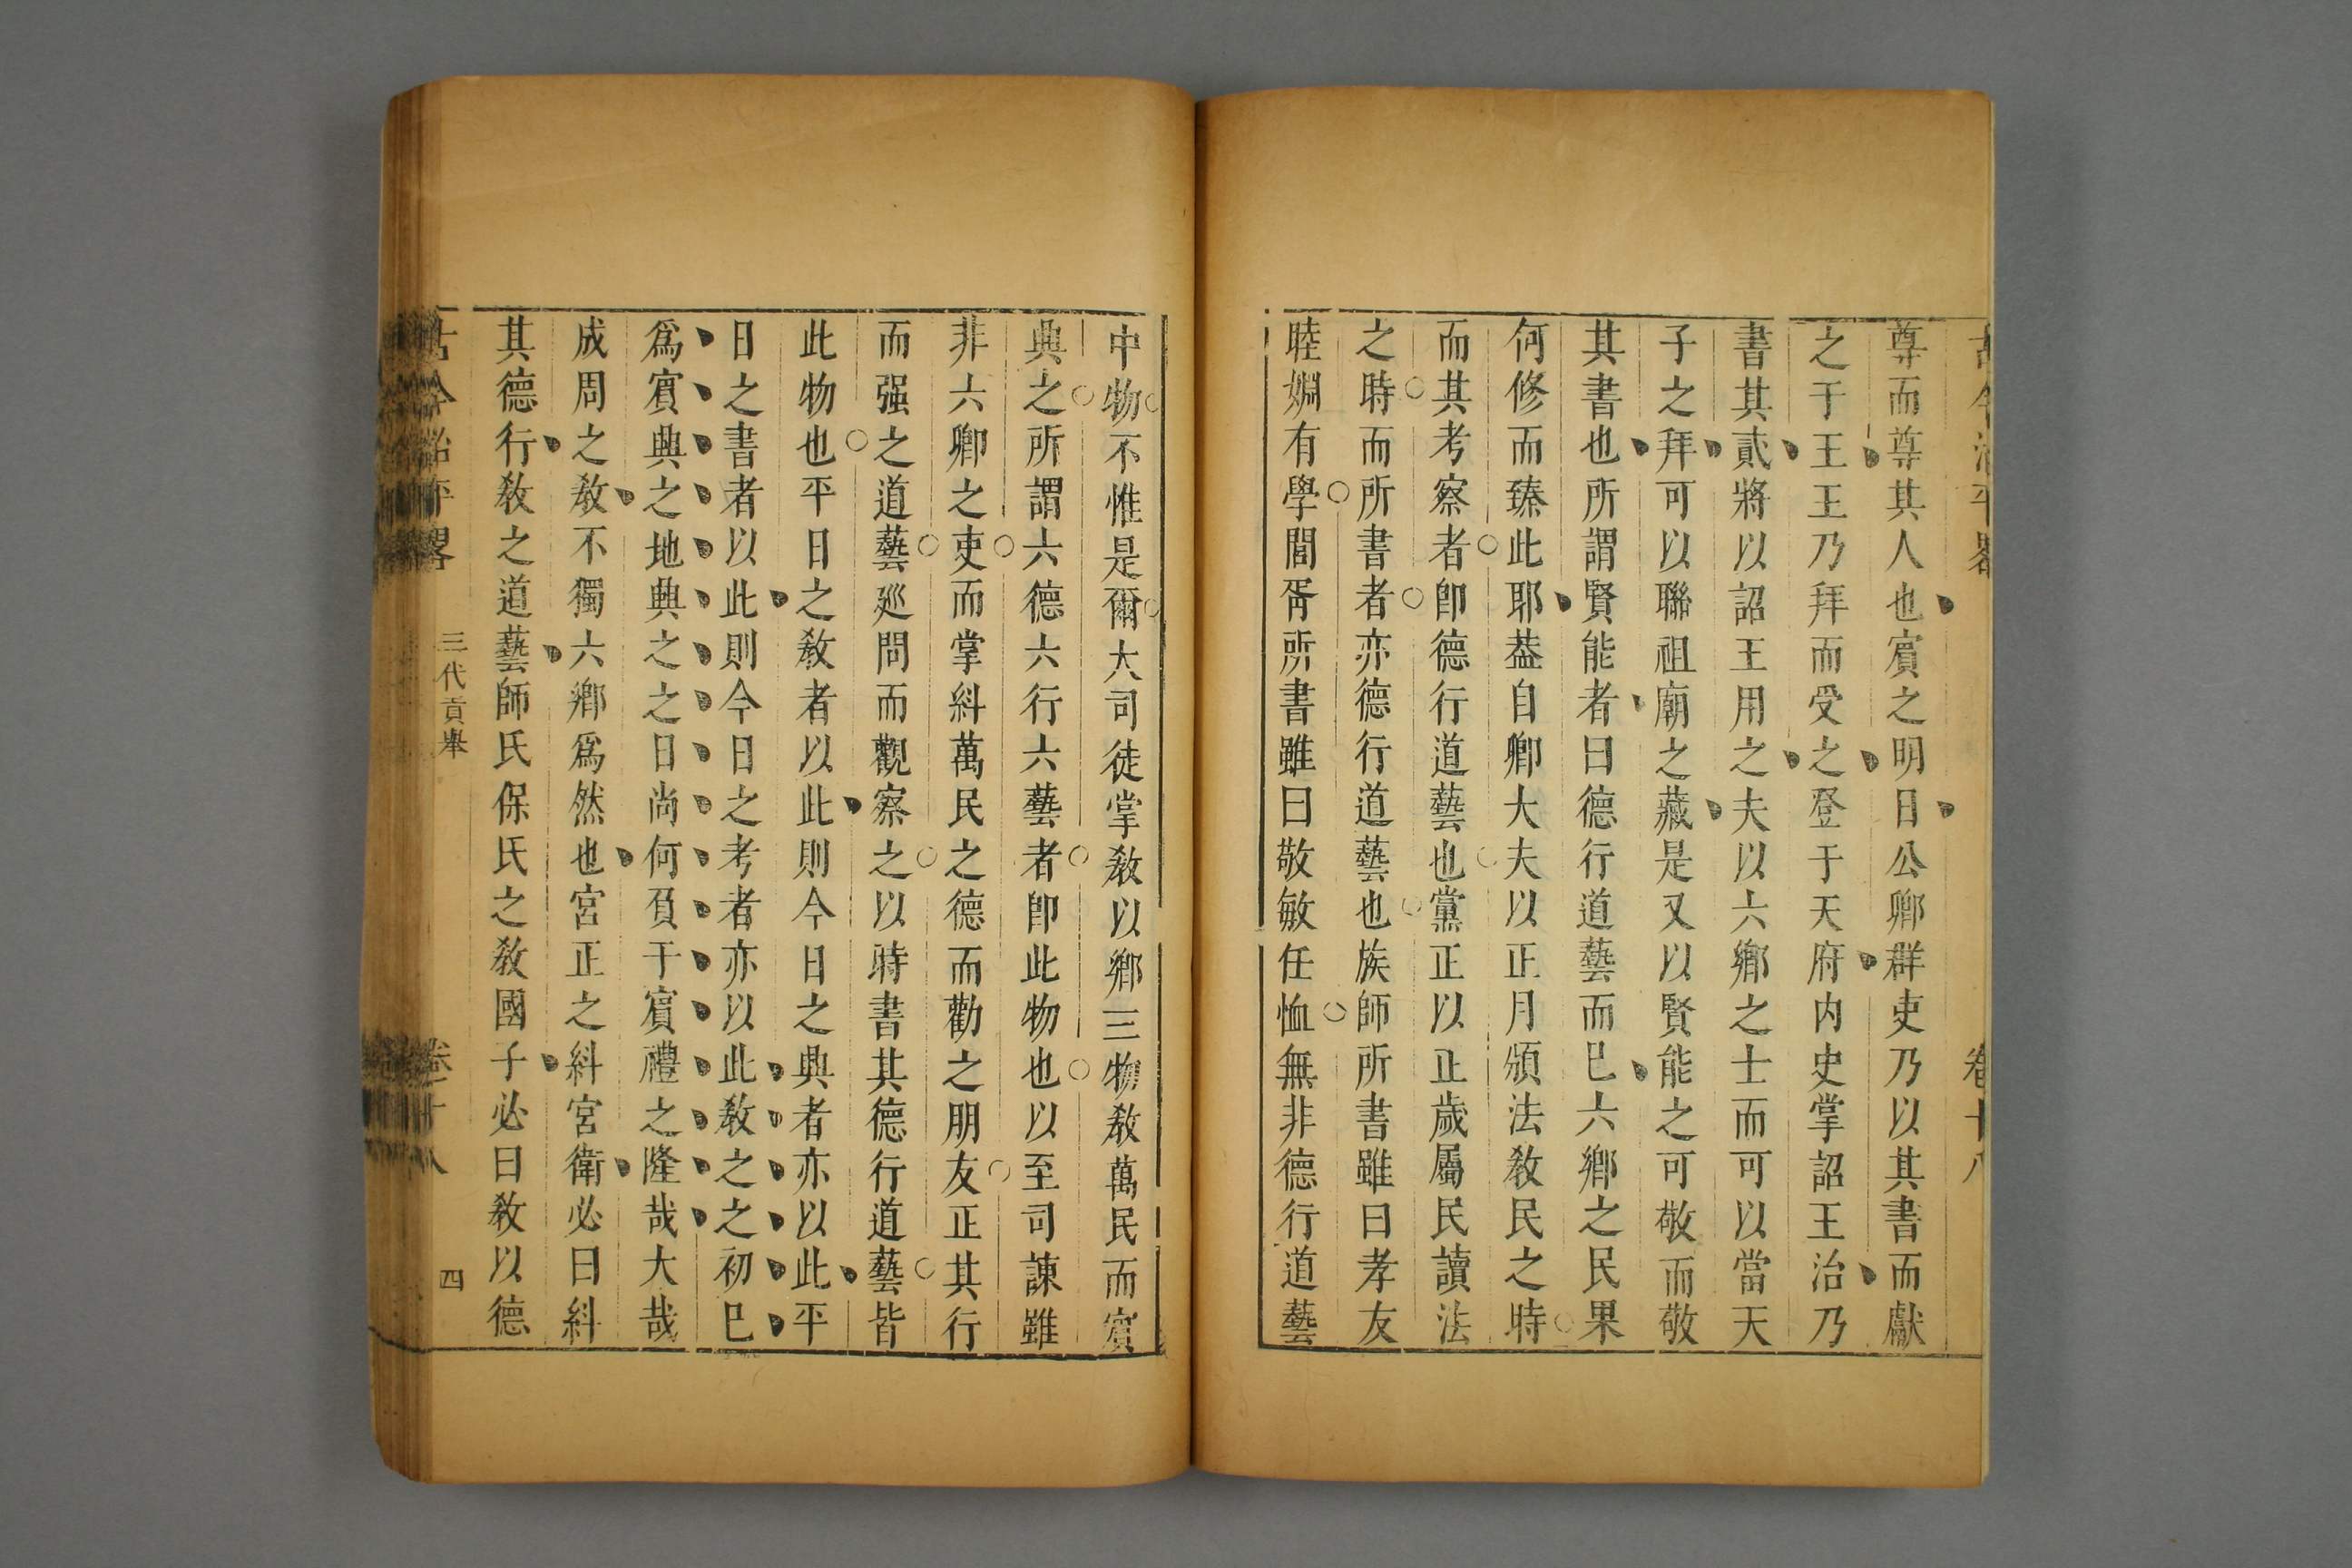 尊而尊其人也賔之明日公卿群吏乃以其書而獻
之于王王乃拜而受之登于天府内史掌詔王治乃
書其貳將以詔王用之夫以六鄉之士而可以當天
子之拜可以聯祖廟之藏是又以賢能之可敬而敬
其書也所謂賢能者曰德行道藝而巳六鄉之民果
何修而臻此耶葢自鄉大夫以正月頒法教民之時
而其考察者卽德行道藝也黨正以正歲屬民讀法
之時而所書者亦德行道藝也族師所書雖曰孝友
睦婣有學閭胥所書雖曰敬敏任恤無非德行道藝
中物不惟是爾大司徒掌教以鄉三物教萬民而賔
典之所謂六德六行六藝者卽此物也以至司諫雖
非六卿之吏而掌糾萬民之德而勸之朋友正其行
而强之道藝廵問而觀察之以時書其德行道藝皆
此物也平日之教者以此則今日之典者亦以此平
日之書者以此則今日之考者亦以此教之之初巳
爲賔典之地典之之日尚何負于賔禮之隆哉大哉
成周之教不獨六鄉爲然也宮正之糾宮衛必曰糾
其德行教之道藝師氏保氏之教國子必曰教以德
古今治平畧
三代貢舉
卷十八
四